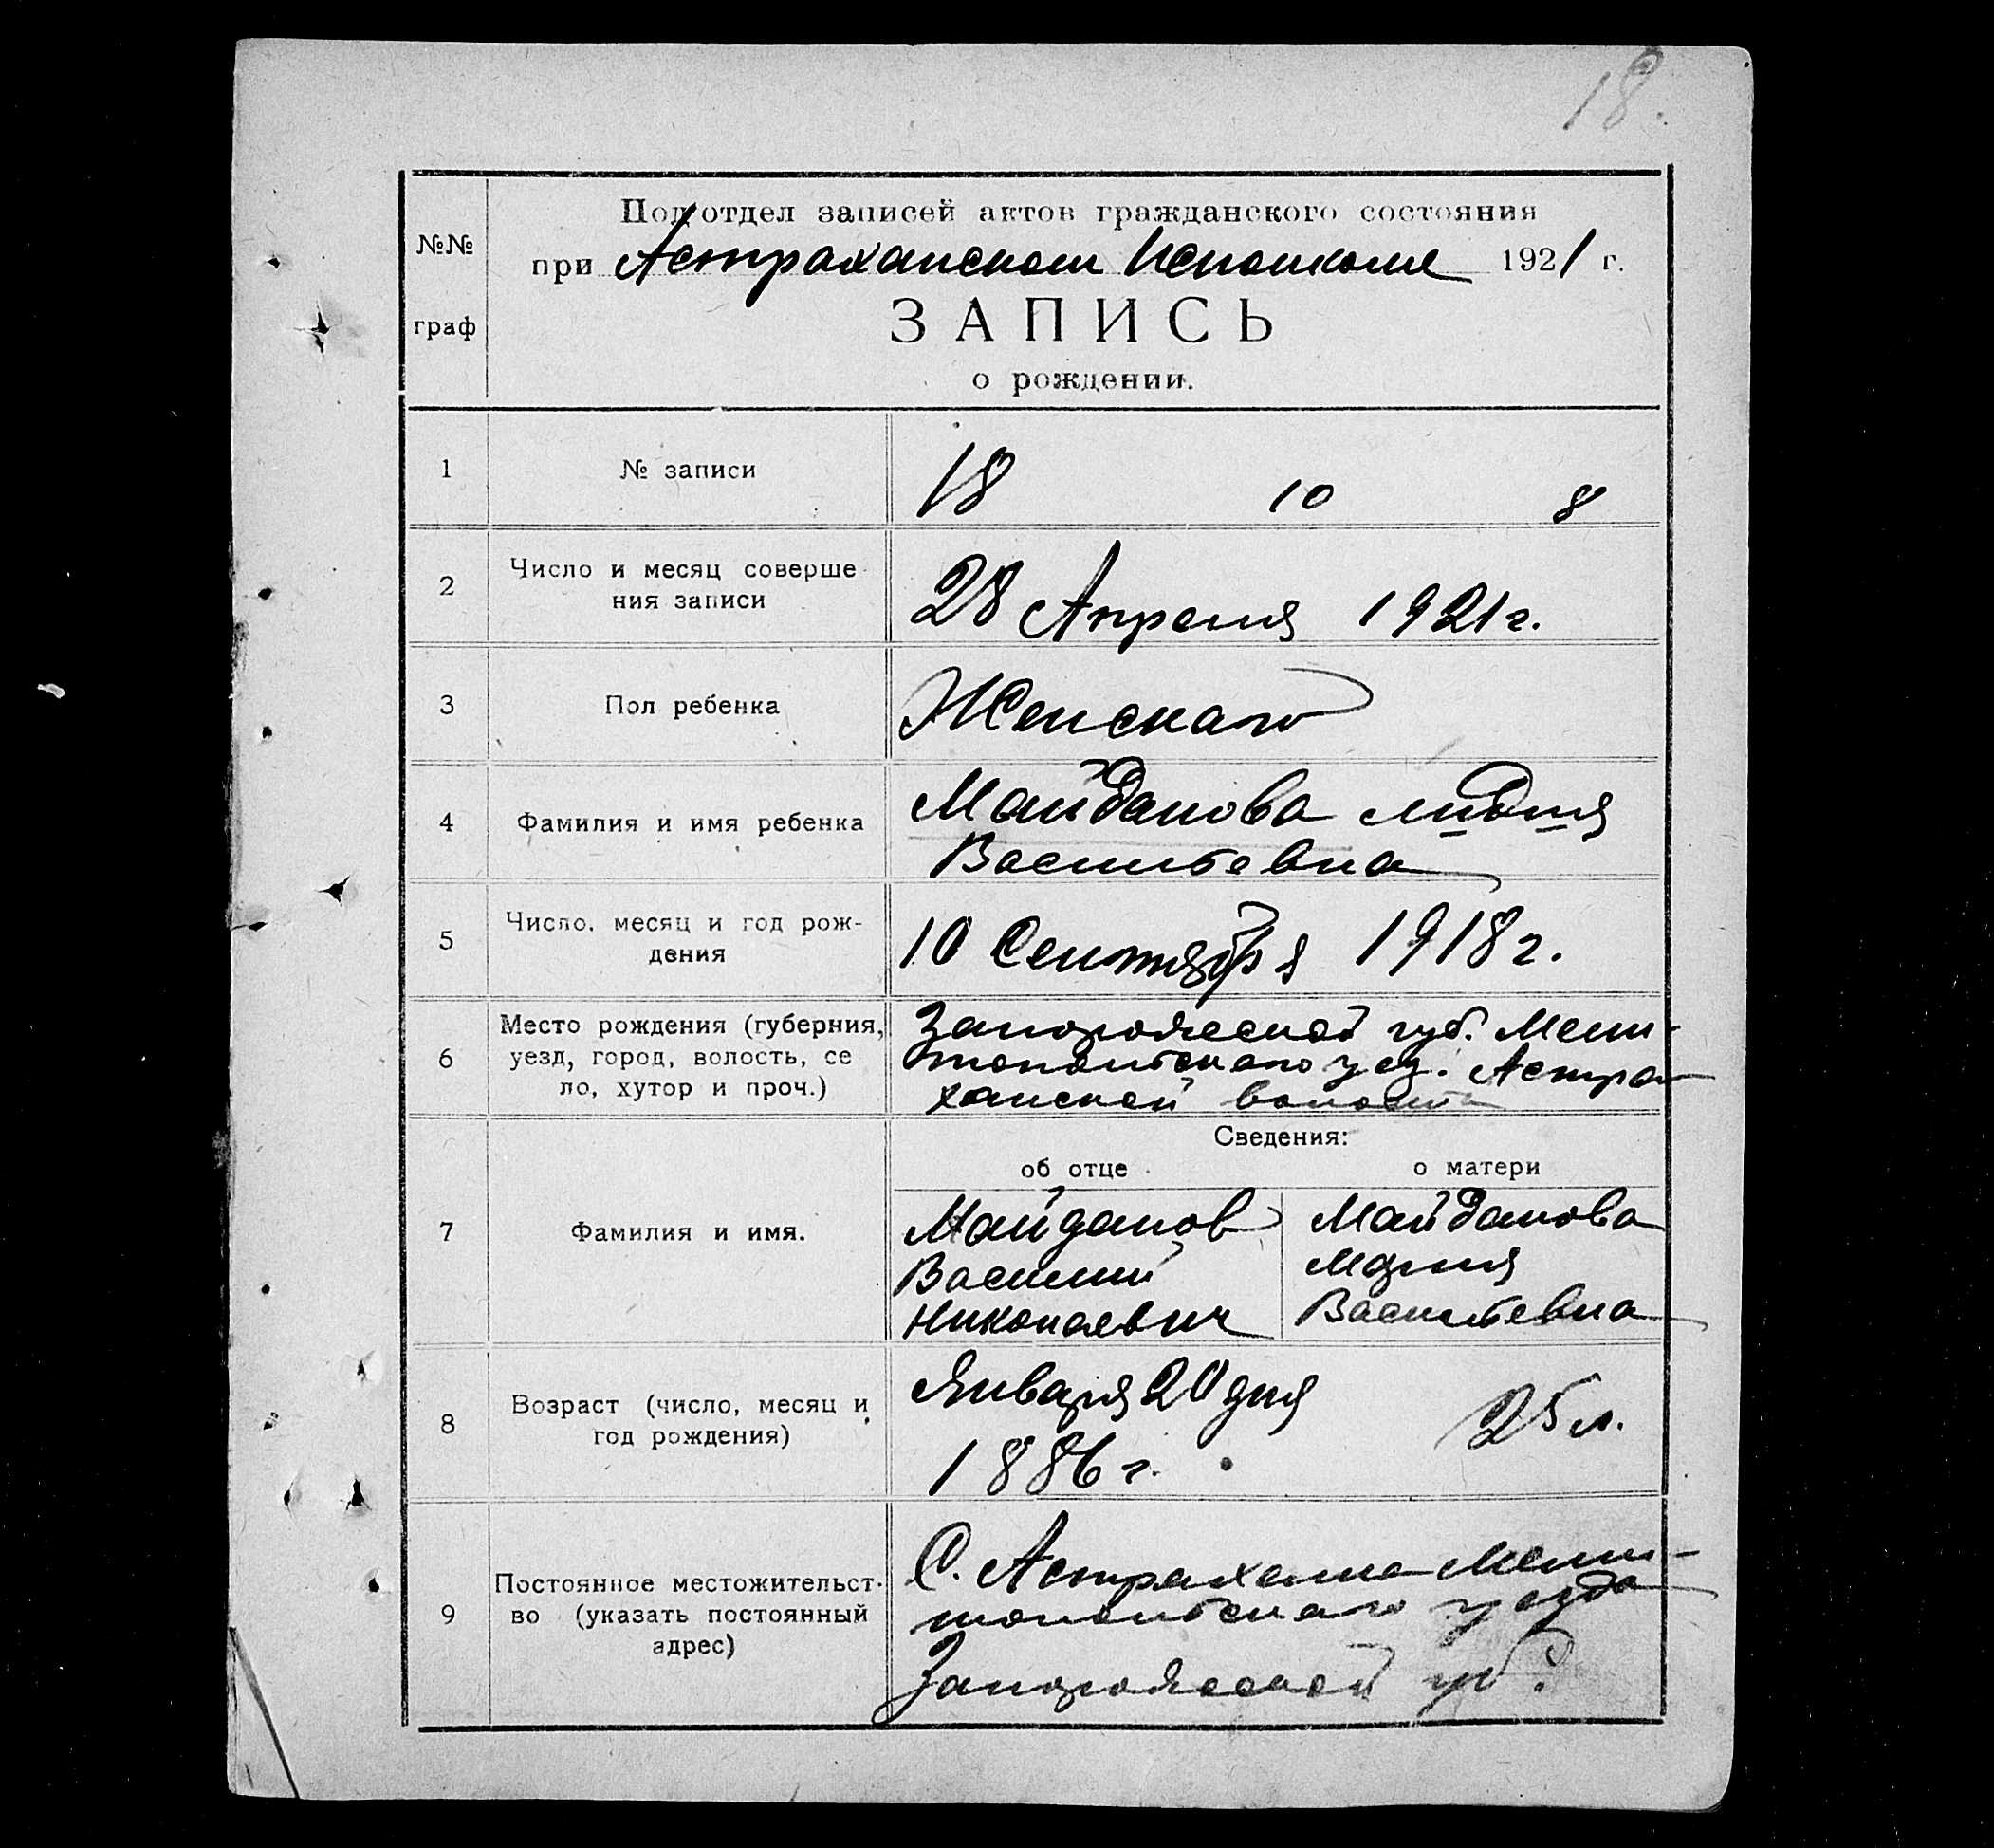 18.
Подотдел записей актов гражданского состояния
№№
при Астраханском Исполкоме 1921 г.
граф
ЗАПИСЬ
о рождении.
1
№ записи
18 10 8
2
Число и месяц соверше
ния записи
28 Апреля 1921 г.
3
Пол ребенка
Женскаго
4
Фамилия и имя ребенка
Майданова Лидия
Васильевна
5
Число, месяц и год рож-
дения
10 Сентября 1918 г.
6
Место рождения (губерния,
уезд, город, волость, се
ло, хутор и проч.)
Запорожской губ. Мели-
топольского уез. Астра
ханской волости
Сведения:
об отце
о матери
7
Фамилия и имя.
Майданов
Василий
Николаевич
Майданова
Мария
Васильевна
8
Возраст (число, месяц и
год рождения)
Января 20 дня
1886 г.
25 л.
9
Постоянное местожительст-
во (указать постоянный
адрес)
С. Астраханка Мели-
топольского уезда
Запорожской губ.